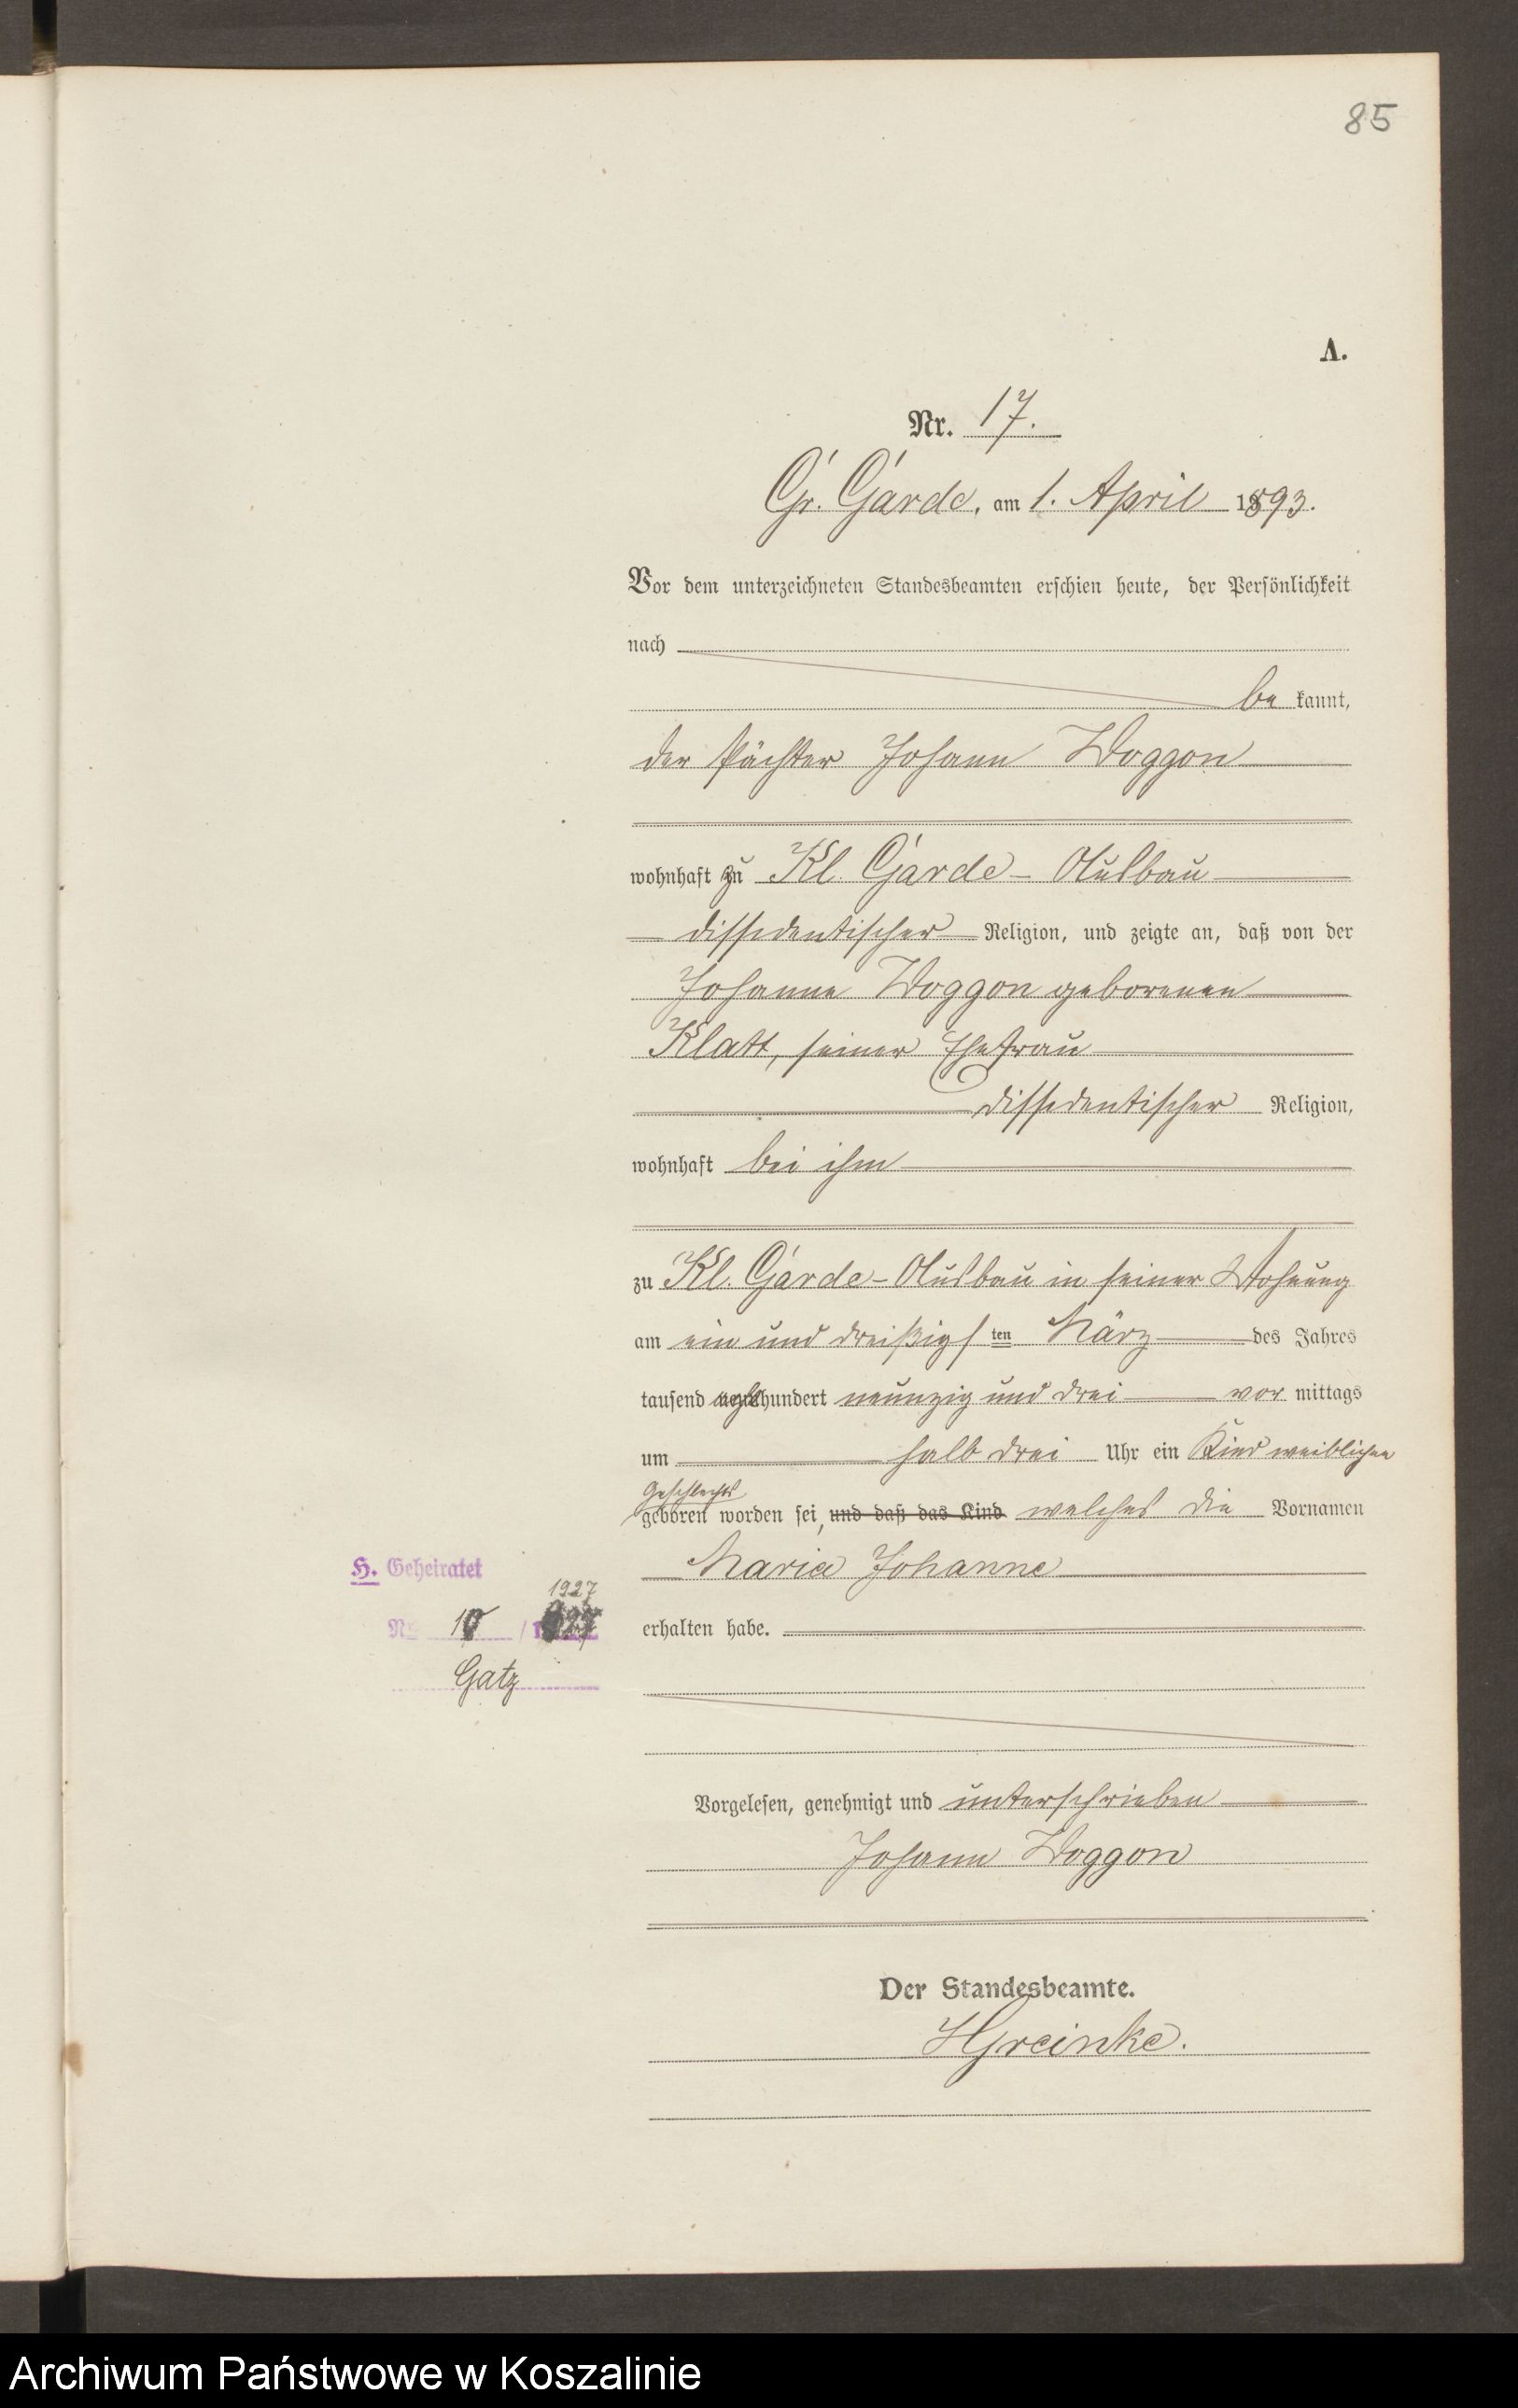 85
A.
Nr. 17.
Gr. Garde, am 1. April 1893.
Vor dem unterzeichneten Standesbeamten erschien heute, der Persönlichkeit
nach
be kannt,
der Pächter Johann Woggon
wohnhaft zu Kl. Garde - Ausbau
dissidentischer Religion, und zeigte an, daß von der
Johanne Woggon geborenen
Klatt, seiner Ehefrau
dissidentischer Religion,
wohnhaft bei ihm
zu Kl. Garde - Ausbau in seiner Wohnung
am ein und dreißigs ten März des Jahres
tausend achthundert neunzig und drei vor mittags
um halb drei Uhr ein Kind weiblichen
Geschlechts
geboren worden sei, und daß das Kind welches die Vornamen
Maria Johanne
H. Geheiratet
1927
erhalten habe.
Nr. /
Gatz
Vorgelesen, genehmigt und unterschrieben
Johann Woggon
Der Standesbeamte.
HGreinke.
Archiwum Państwowe w Koszalinie